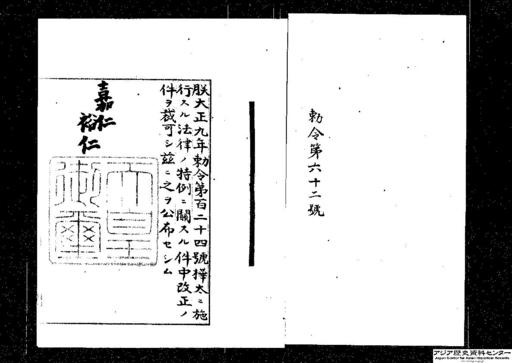 勅令第六十二號
朕大正九年勅令第百二十四號樺太ニ施
行スル法律ノ特例ニ關スル件中改正ノ
件ヲ裁可シ茲ニ之ヲ公布セシム
嘉仁
裕仁
天皇御璽
アジア歴史資料センター
Japan Center for Asian Historical Records